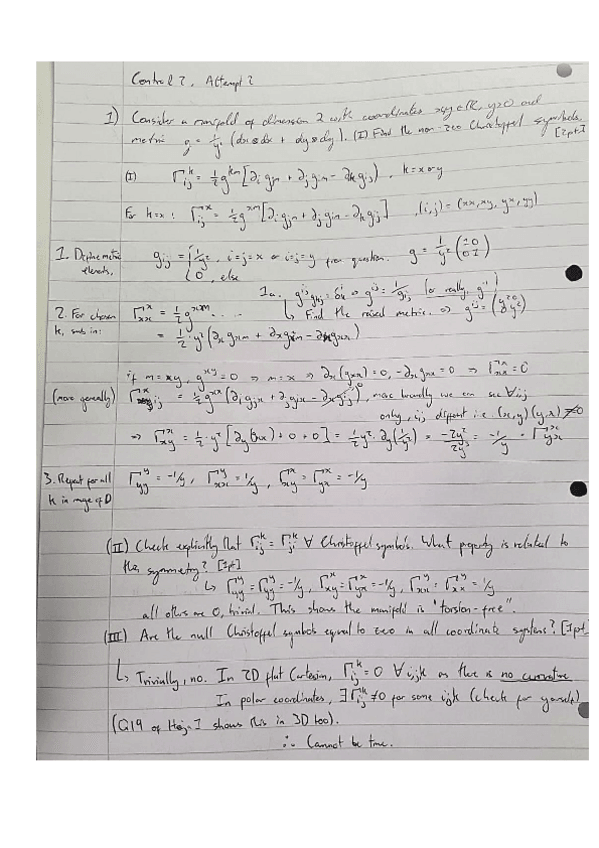 Control 2, Attempt 2
1) Consider a manifold of dimension 2 with coordinates x,y ∈ R, y>0 and
metric g = 1/y² (dx⊗dx + dy⊗dy). (I) Find the non-zero Christoffel symbols. [2pt]
(I) Γ^k_ij = ½g^km[∂_i g_jm + ∂_j g_im - ∂_k g_ij], k = x or y
For k=x: Γ^x_ij = ½g^xm[∂_i g_jm + ∂_j g_im - ∂_k g_ij], (i,j) = (xx, xy, yx, yy)
1. Define metric elements. g_ij = { 1/y², i=j=x or i=j=y from question. g = 1/y² (1 0
0, else 0 1)
1a. g^ij g_kj = δ^i_k ⇒ g^ij = 1/g_ij (or really, g^-1)
2. For chosen k, sub in: Γ^x_xx = ½g^xm ... ↳ Find the raised metric. ⇒ g^ij = (y² 0
0 y²)
= ½·y²(∂_x g_xm + ∂_x g_xm - ∂_x g_xx)
if m = xy, g^xy = 0 ⇒ m = x ⇒ ∂_x(g_xx) = 0, -∂_x g_xx = 0 ⇒ Γ^x_xx = 0
(more generally) Γ^x_ij = ½g^xx(∂_i g_jx + ∂_j g_ix - ∂_x g_ij), more broadly we can see ∀ ij
only, i,j different i.e. (x,y) (y,x) ≠ 0
⇒ Γ^x_xy = ½·y²[∂_y(g_xx) + 0 + 0] = ½y²·∂_y(1/y²) = -2y²/2y³ = -1/y = Γ^x_yx
3. Repeat for all k in range of D Γ^y_yy = -1/y, Γ^y_xx = 1/y, Γ^x_xy = Γ^x_yx = -1/y
(II) Check explicitly that Γ^k_ij = Γ^k_ji ∀ Christoffel symbols. What property is related to
this symmetry? [1pt]
↳ Γ^y_yy = Γ^y_yy = -1/y, Γ^x_xy = Γ^x_yx = -1/y, Γ^y_xx = Γ^y_xx = 1/y
all others are 0, trivial. This shows the manifold is "torsion-free".
(III) Are the null Christoffel symbols equal to zero in all coordinate systems? [1pt]
↳ Trivially, no. In 2D flat Cartesian, Γ^k_ij = 0 ∀ ijk as there is no curvature
In polar coordinates, ∃ Γ^k_ij ≠ 0 for some ijk (check for yourself)
(Q19 of Hoja I shows this in 3D too).
∴ Cannot be true.